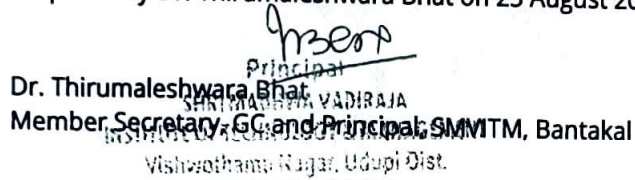 Thirumaleshwara Bhat on 25 August 20
Principal
Dr. Thirumaleshwara Bhat
SHRI MADHWA VADIRAJA
Member Secretary, GC and Principal, SMVITM, Bantakal
Vishwothama Nagar, Udupi Dist.